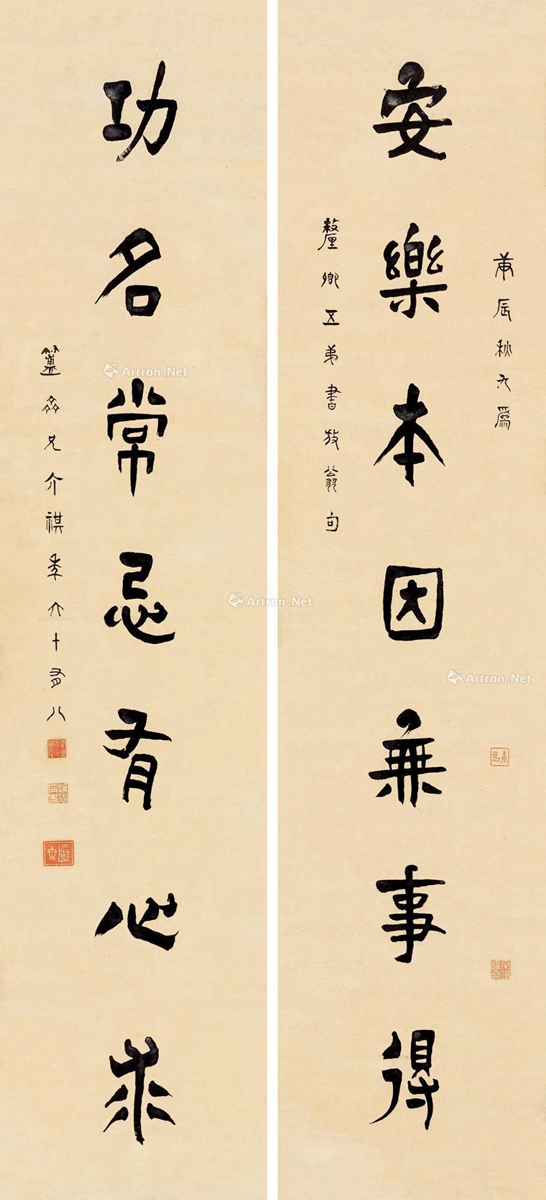 庚辰秋九為
安樂本因無事得
釐卿五弟書放翁句
功名常忌有心求
簠齋兄介祺年六十有八
Artron.Net
Artron.Net
Artron.Net